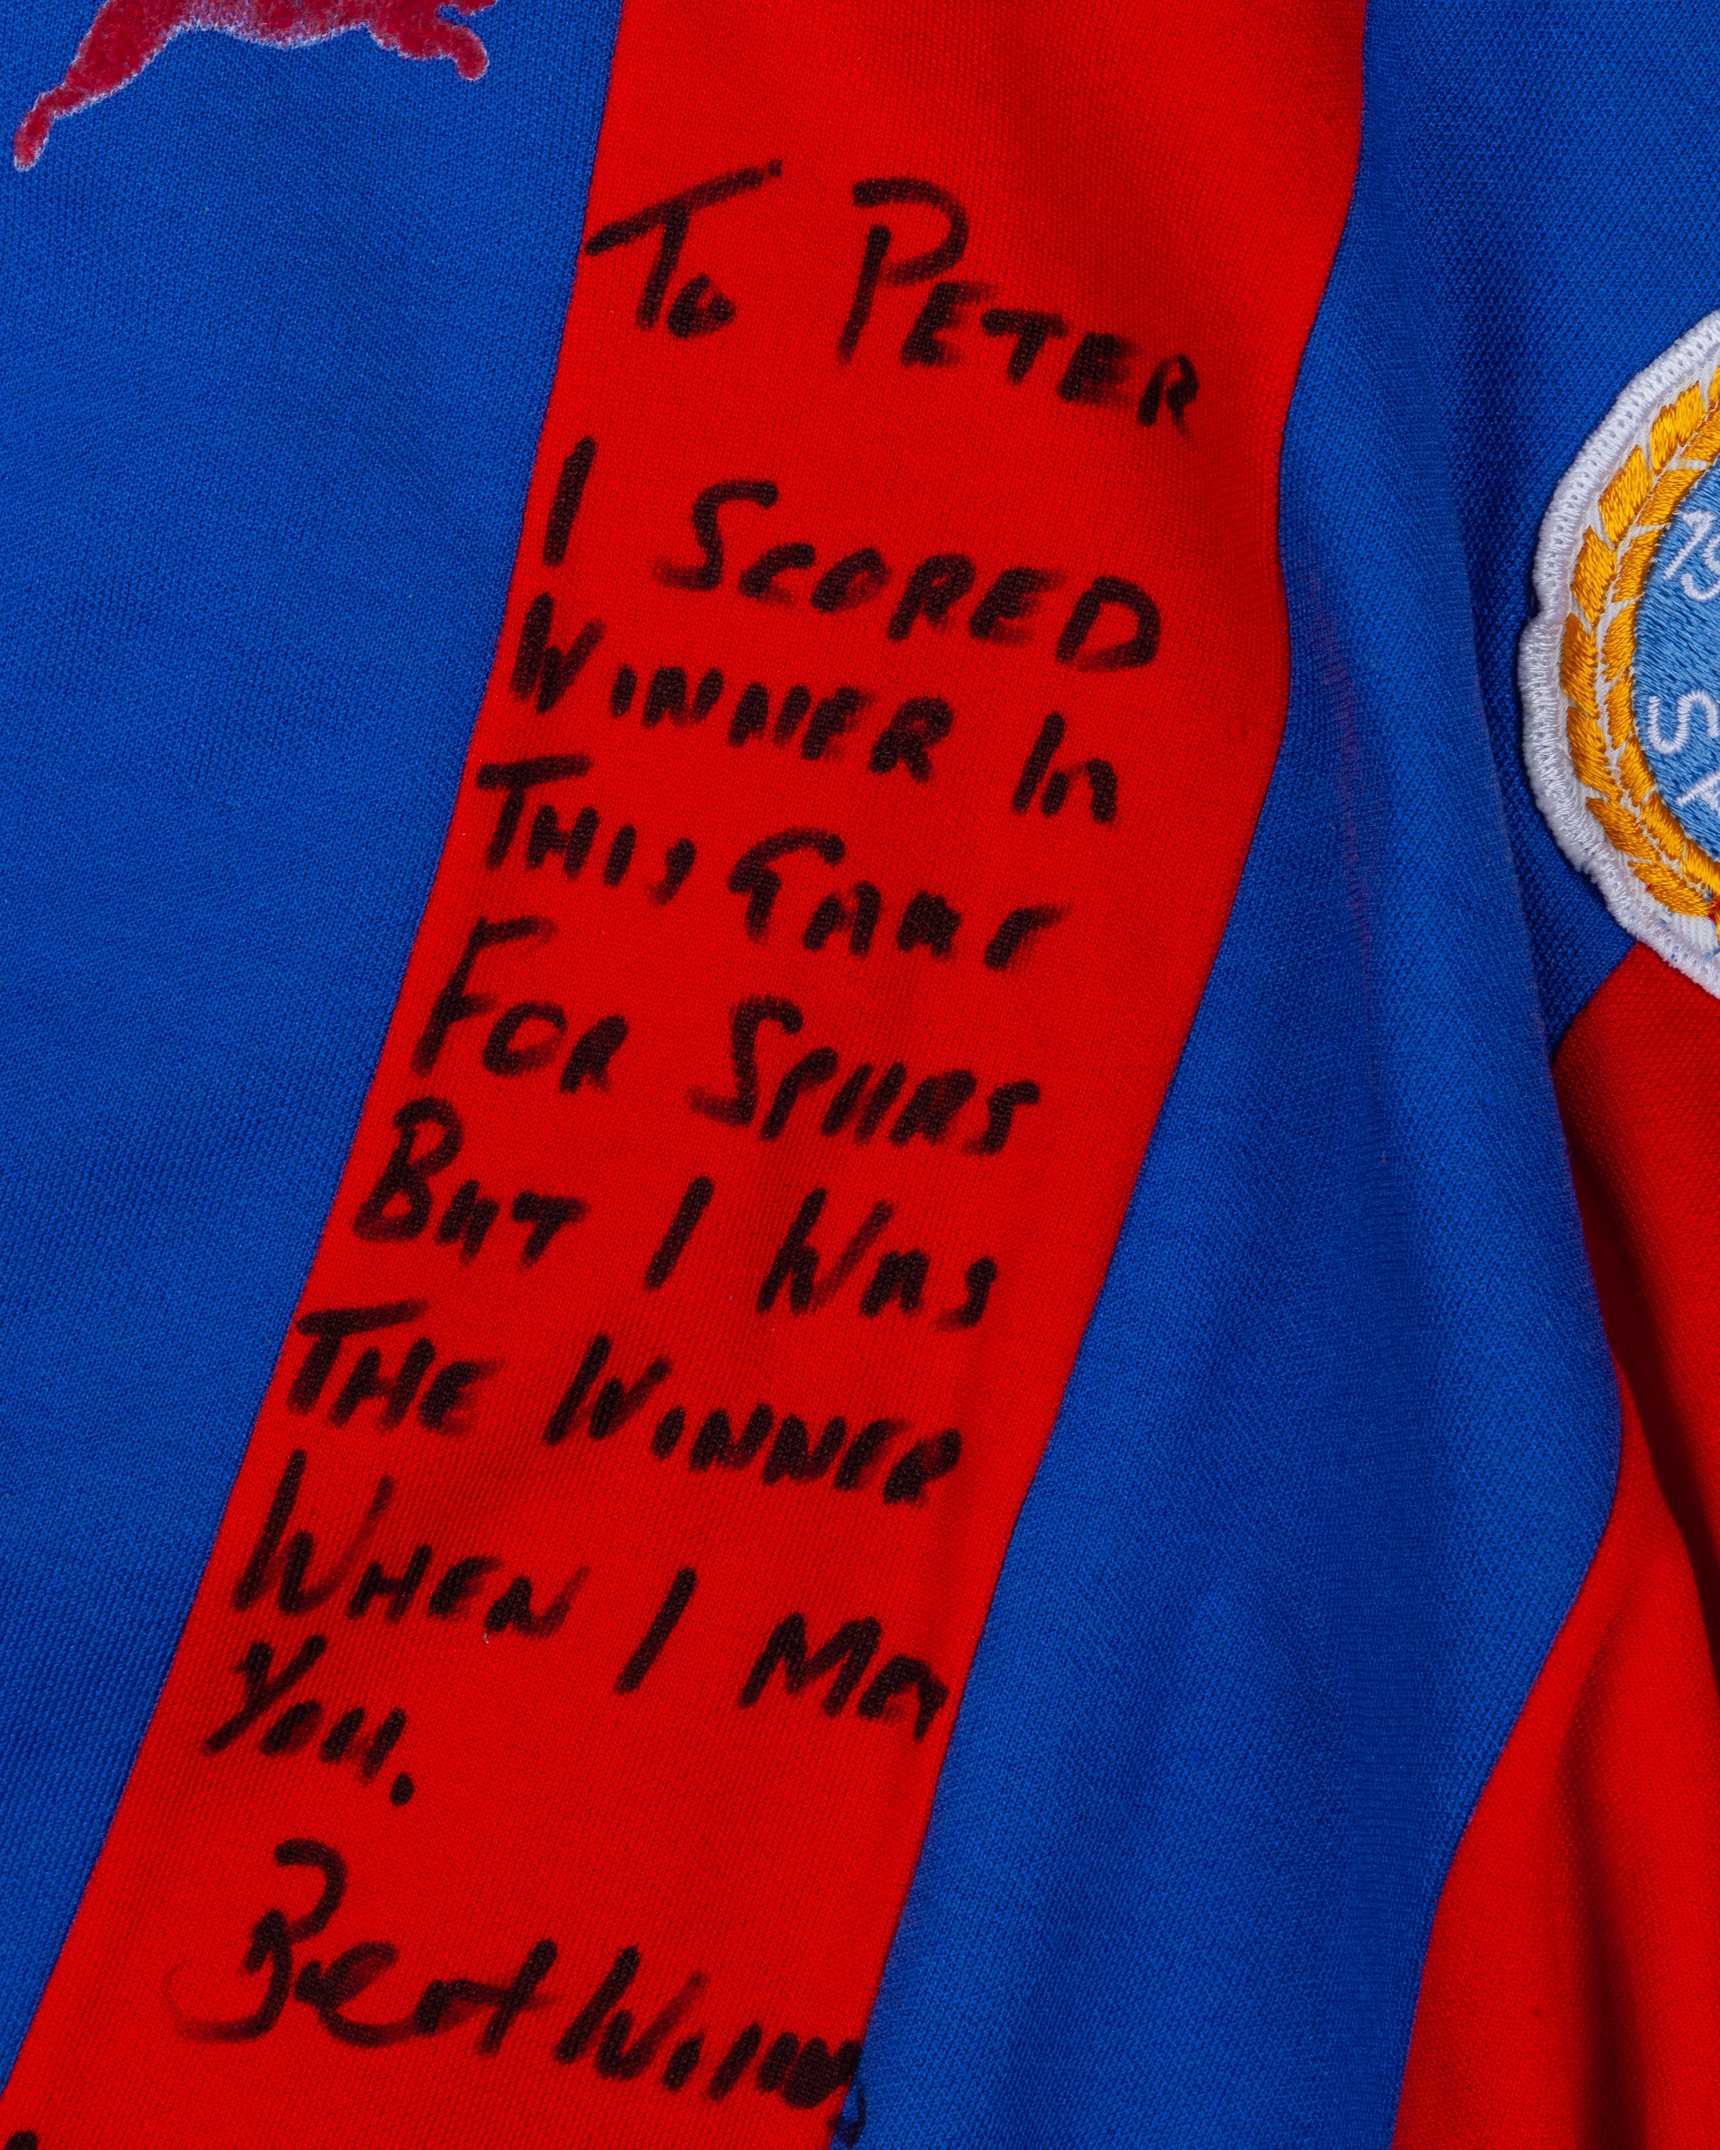 To PETER
I SCORED
WINNER In
THIS GAME
FOR SPURS
BUT I WAS
THE WINNER
WHEN I MET
YOU.
Best Wishes
19
S A